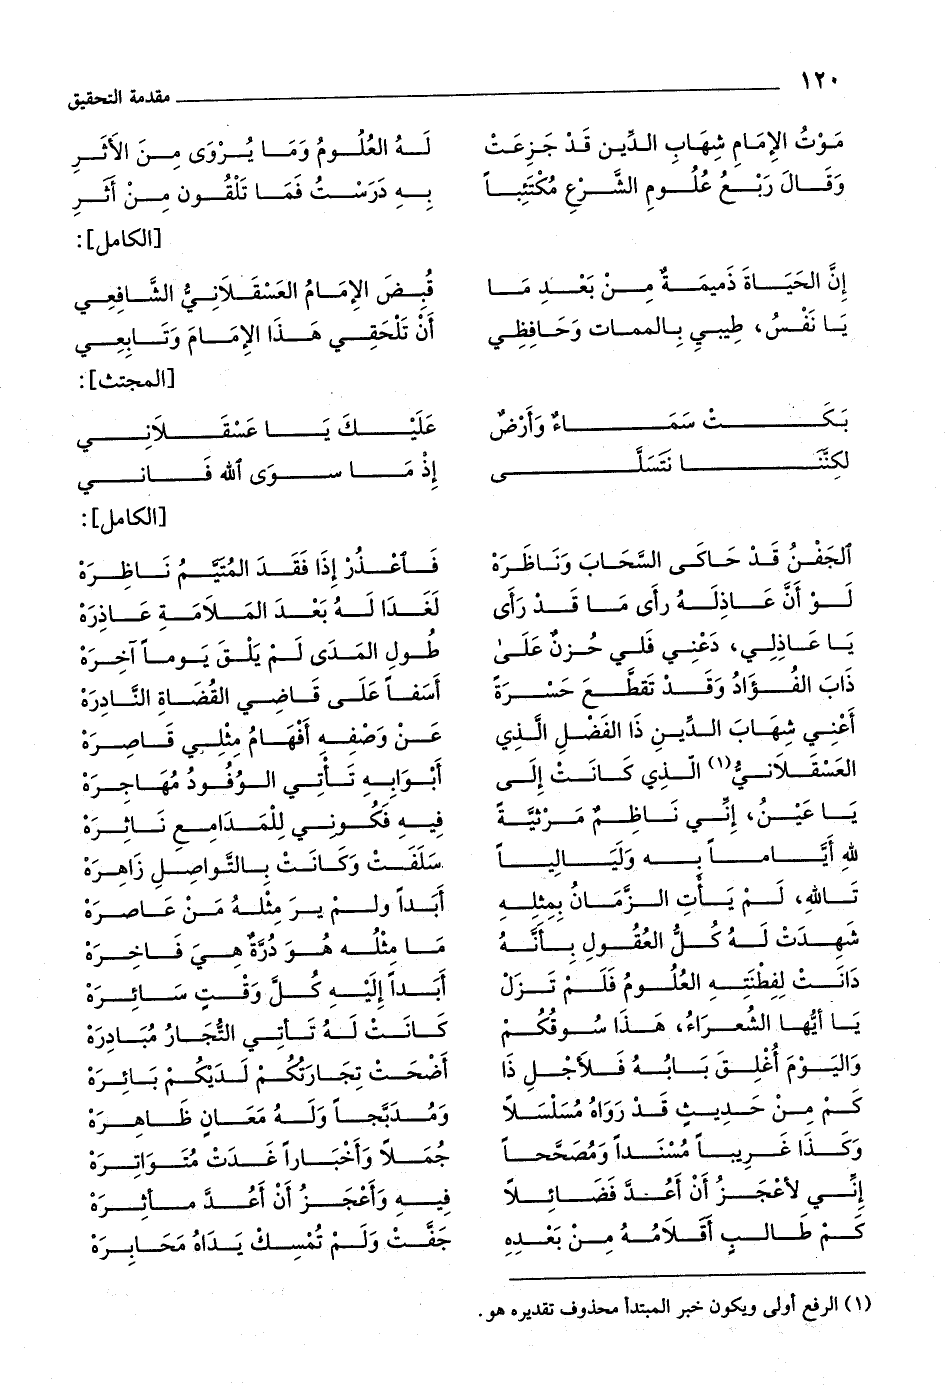 ١٢٠ مقدمة التحقيق
مَوْتُ الإِمَامِ شِهَابِ الدِّينِ قَدْ جَزِعَتْ لَهُ العُلُومُ وَمَا يُرْوَى مِنَ الأَثَرِ
وَقَالَ رَبْعُ عُلُومِ الشَّرْعِ مُكْتَئِباً بِهِ دَرَسْتُ فَمَا تَلْقُونَ مِنْ أَثَرِ
[الكامل]:
إِنَّ الحَيَاةَ ذَمِيمَةٌ مِنْ بَعْدِ مَا قُبِضَ الإِمَامُ العَسْقَلَانِيُّ الشَّافِعِي
يَا نَفْسُ، طِيبِي بِالممات وَحَافِظِي أَنْ تَلْحَقِي هَذَا الإِمَامَ وَتَابِعِي
[المجتث]:
بَكَتْ سَمَاءٌ وَأَرْضٌ عَلَيْكَ يَا عَسْقَلَانِي
لكِنَّنَا نَتَسَلَّى إِذْ مَا سوَى ٱلله فَانِي
[الكامل]:
ٱلجَفْنُ قَدْ حَاكَى السَّحَابَ وَنَاظَرَهْ فَٱعْذُرْ إِذَا فَقَدَ المُتَيَّمُ نَاظِرَهْ
لَوْ أَنَّ عَاذِلَهُ رأَى مَا قَدْ رَأَى لَغَدَا لَهُ بَعْدَ المَلَامَةِ عَاذِرَهْ
يَا عَاذِلِي، دَعْنِي فَلي حُزنٌ عَلَىٰ طُولِ المَدَى لَمْ يَلْقَ يَوماً آخِرَهْ
ذَابَ الفُؤَادُ وَقَدْ تَقَطَّعَ حَسْرَةً أَسَفاً عَلَى قَاضِي القُضَاةِ النَّادِرَهْ
أَعْنِي شِهَابَ الدِّينِ ذَا الفَضْلِ الَّذِي عَنْ وَصْفِهِ أَفْهَامُ مِثْلِي قَاصِرَهْ
العَسْقَلَانِيُّ(١) الَّذِي كَانَتْ إِلَى أَبْوَابِهِ تَأْتِي الوُفُودُ مُهَاجِرَهْ
يَا عَيْنُ، إِنِّي نَاظِمٌ مَرْثِيَّةً فِيهِ فَكُونِي لِلْمَدَامِعِ نَاثِرَهْ
للهِ أَيَّاماً بِهِ وَلَيَالِياً سَلَفَتْ وَكَانَتْ بِالتَّوَاصِلِ زَاهِرَهْ
تَاللهِ، لَمْ يَأْتِ الزَّمَانُ بِمِثلِهِ أَبَداً ولمْ يرَ مِثْلَهُ مَنْ عَاصرَهْ
شهِدَتْ لَهُ كُلُّ العُقُولِ بِأَنَّهُ مَا مِثْلُه هُوَ دُرَّةٌ هِيَ فَاخِرَهْ
دَانَتْ لِفِطْنَتِهِ العُلُومُ فَلَمْ تَزَلْ أَبَداً إِلَيْهِ كُلَّ وَقْتٍ سَائِرَهْ
يَا أيُّها الشُّعرَاءُ، هَذَا سُوقُكُمْ كَانَتْ لَهُ تَأتِي التُّجَارُ مُبَادِرَهْ
وَاليَوْمَ أُغْلِقَ بَابُهُ فَلأَجْلِ ذَا أَضْحَتْ تِجَارَتُكُمْ لَدَيْكُمْ بَائِرَهْ
كَمْ مِنْ حَدِيثٍ قَدْ رَوَاهُ مُسَلْسَلاً وَمُدَبَّجاً وَلَهُ مَعَانٍ ظَاهِرَهْ
وَكَذَا غَرِيباً مُسْنَداً وَمُصَحَّحاً جُمَلاً وَأَخْبَاراً غَدَتْ مُتَوَاتِرَهْ
إِنِّي لأَعْجَزُ أَنْ أَعُدَّ فَضَائِلاً فِيهِ وَأَعْجَزُ أَنْ أَعُدَّ مآثِرَهْ
كَمْ طَالبٍ أَقْلَامُهُ مِنْ بَعْدِهِ جَفَّتْ وَلَمْ تُمْسِكْ يَدَاهُ مَحَابِرَهْ
(١) الرفع أولى ويكون خبر المبتدأ محذوف تقديره هو.